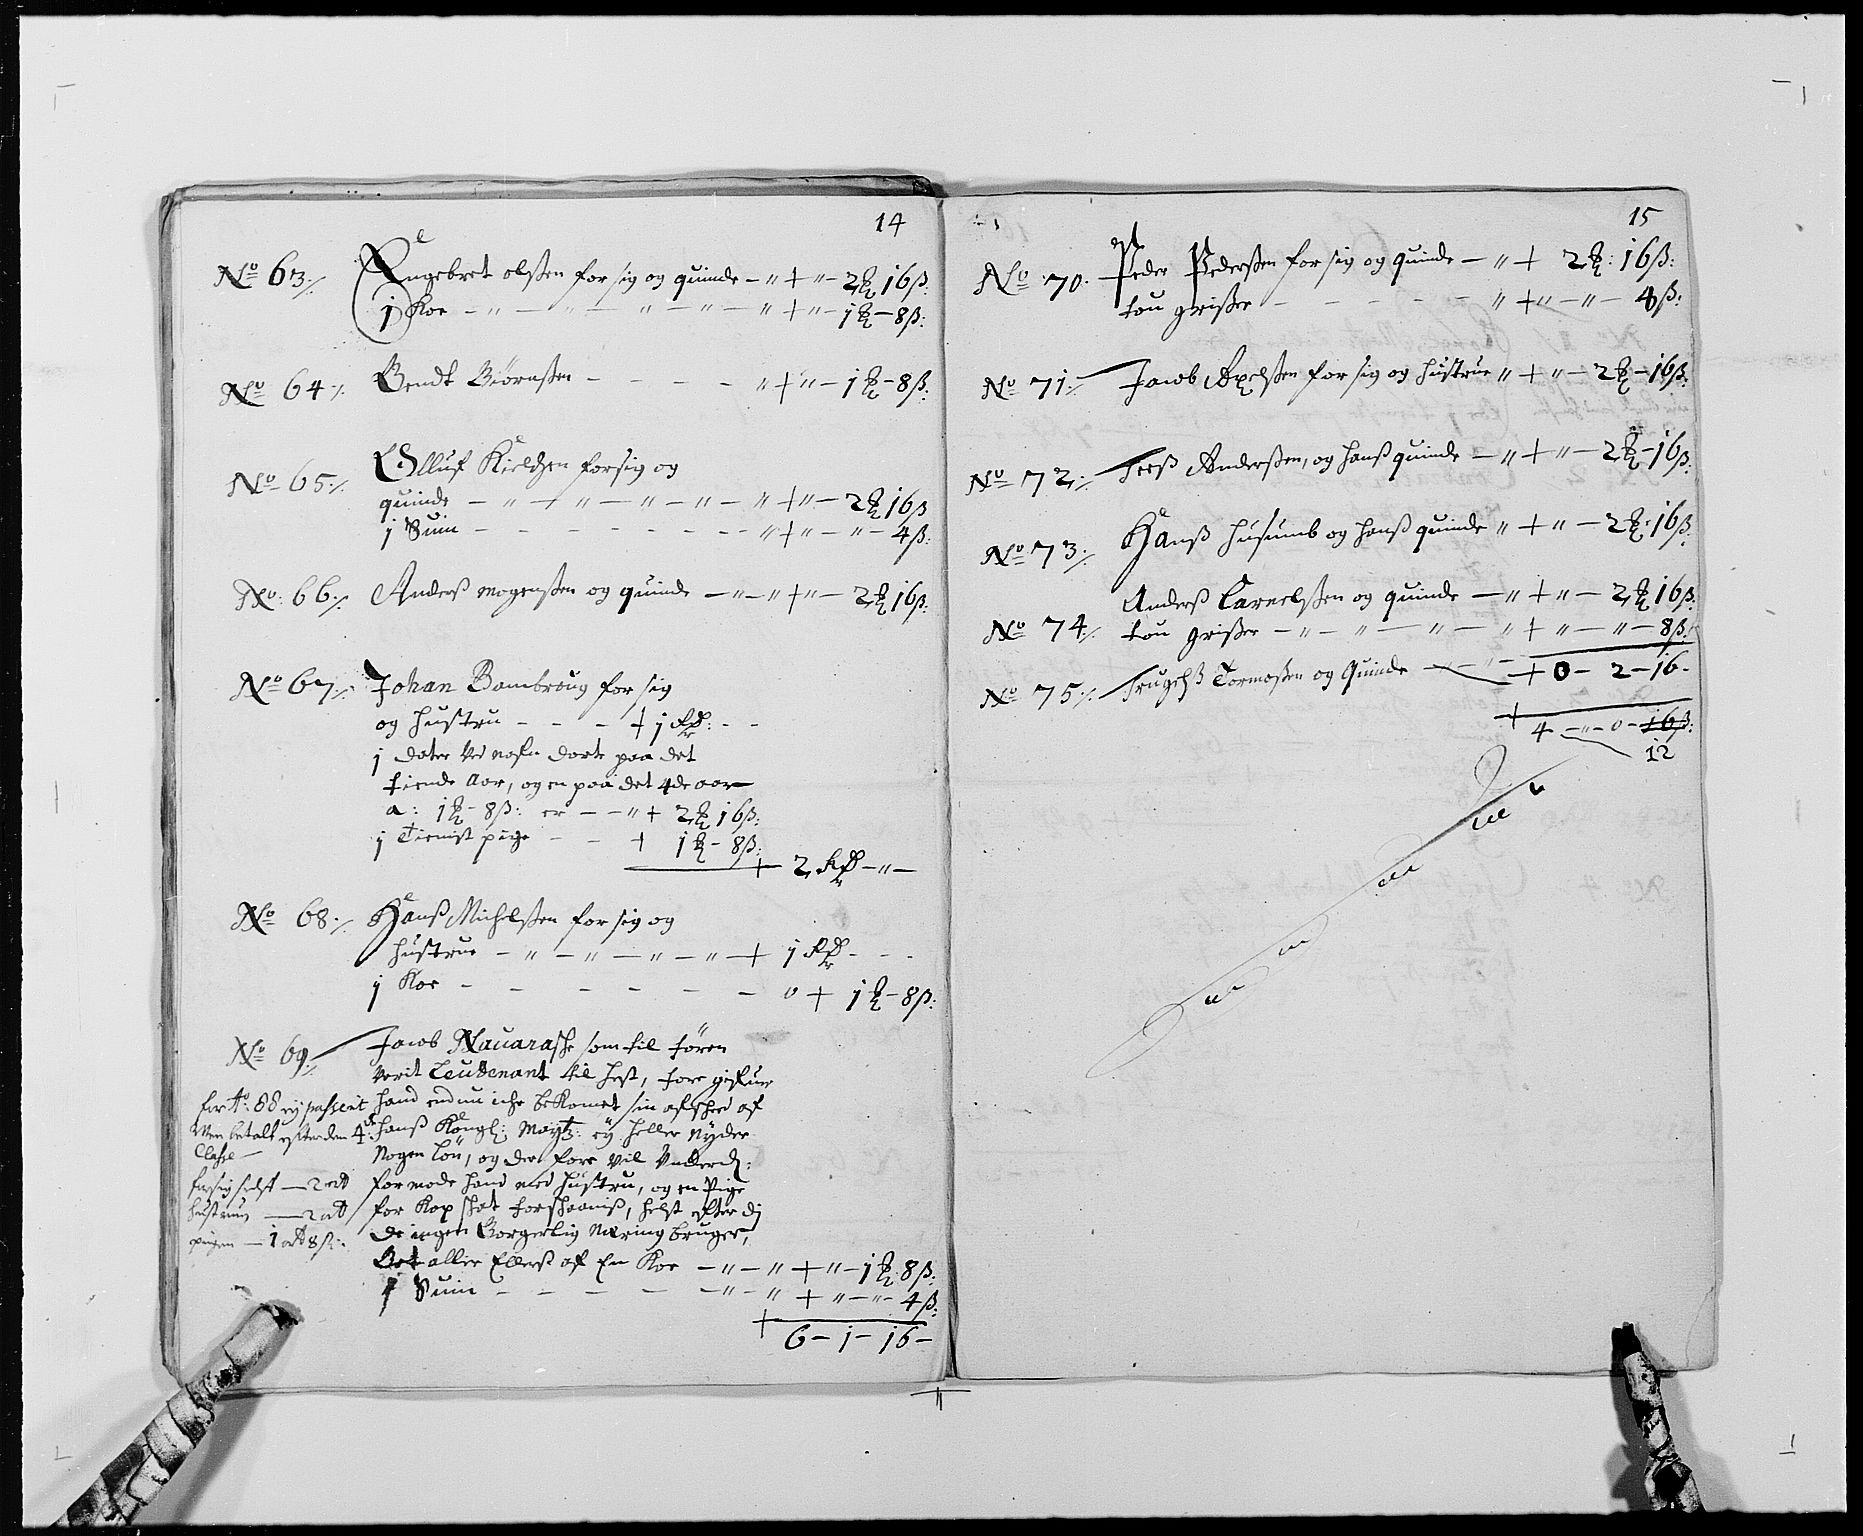 14
No 63 ./. Engebret olßen for sig og quinde — " + " — 2 16 ß:
1 Koe — " — " — " — " + " — 1 — 8 ß:
No 64 ./. Bendt Biörnßen — — — — " + " — 1 — 8 ß:
No 65 ./. Olluf Kieldßen for sig og
quinde — " — " — " — " + " — 2 16 ß
1 Suin — — — — — — " + " — " — 4 ß:
No: 66 ./. Anderß mogenßen og quinde — " — " + " — 2 16 ß:
No 67 ./. Johan Bambroug for sig
og hustru — — — + 1 Rdr: — —
1 dater ved nafn dorte paa det
tiende Aar, og en paa det 4de aar
a: 1 — 8 ß: er — — " + 2 16 ß:
1 Tienist pige — — + 1 — 8 ß:
+ 2 Rdr — " —
No 68 ./. Hanß Michelßen for sig og
hustrue — " — " — " — " — + 1 Rdr — — —
1 Koe — — — — — — 0 + 1 — 8 ß:
No 69 ./. Jacob Nauarashe som til foren
Verit Leutenant til hest, fore gifuer
hand end nu iche bekomet sin afsched af
hanß Kongl: Maytz: ey heller nyder
Nogen lön, og der fore vil
formode hand med hustru, og en Pige
for Kop shat forshaaniß, helst efter di
de ingen Borgerlig Næring bruger,
aller Ellerß af En Koe — " — " + " — 1 8 ß:
1 Suin — — — — — " — " + " — " — 4 ß:
+ 6 — 1 — 16 —
for Ao: 88 ej passerit
Men betalt efter den 4de
Classe —
for sig self — 2 ort
hustruen — 2 ort
pigen — 1 ort 8 ß:
15
No 70. Peder Pederßen for sig og quinde — " + 2 : 16 ß:
tou grißer — — — — — — " + " — " — 8 ß:
No 71 ./. Jacob Axelßen for sig og hustrue " + " — 2 — 16 ß:
No 72 ./. Anderßen, og hanß quinde — " + " — 2 — 16 ß:
No 73 ./. Hanß Husumb og hanß quinde " + " — 2 - 16 ß:
No 74 ./. Anderß Carnelßen og quinde — " + " — 2 16 ß:
tou grißer — " — " — " — " + " — " — 8 ß:
No 75 ./. Trugelß Tormoßen og Quinde — " — + 0 — 2 — 16 -
+ 4 — " — 0 — 16 ß:
12